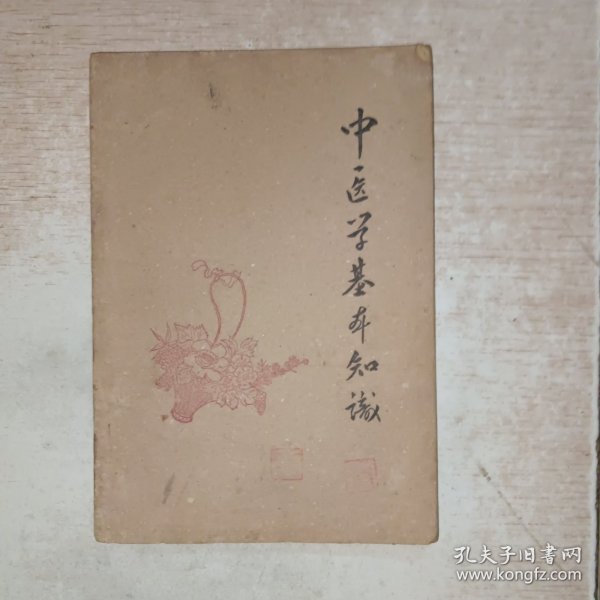 中医学基本知識
孔夫子旧書网
www.kongfz.com